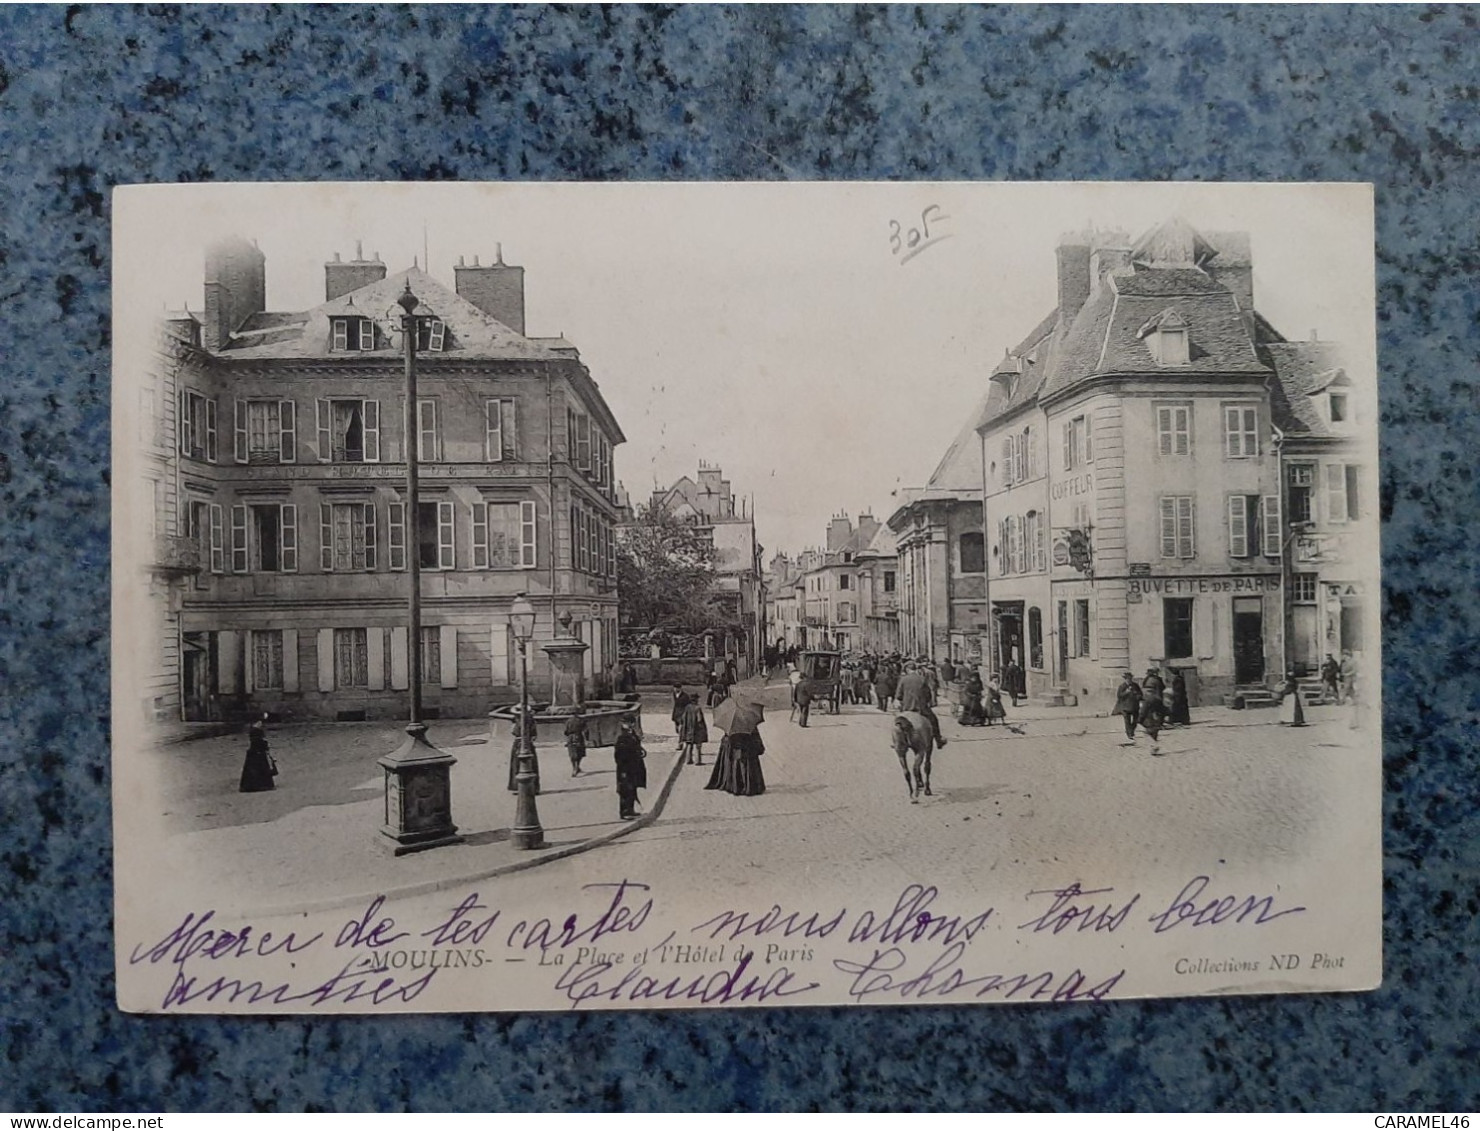 30F
HOTEL DE PARIS
COIFFEUR
BUVETTE DE PARIS
TA
Merci de tes cartes, nous allons tous bien
MOULINS - — La Place et l'Hôtel de Paris
Collections ND Phot
amitiés Claudia Thomas
CARAMEL46